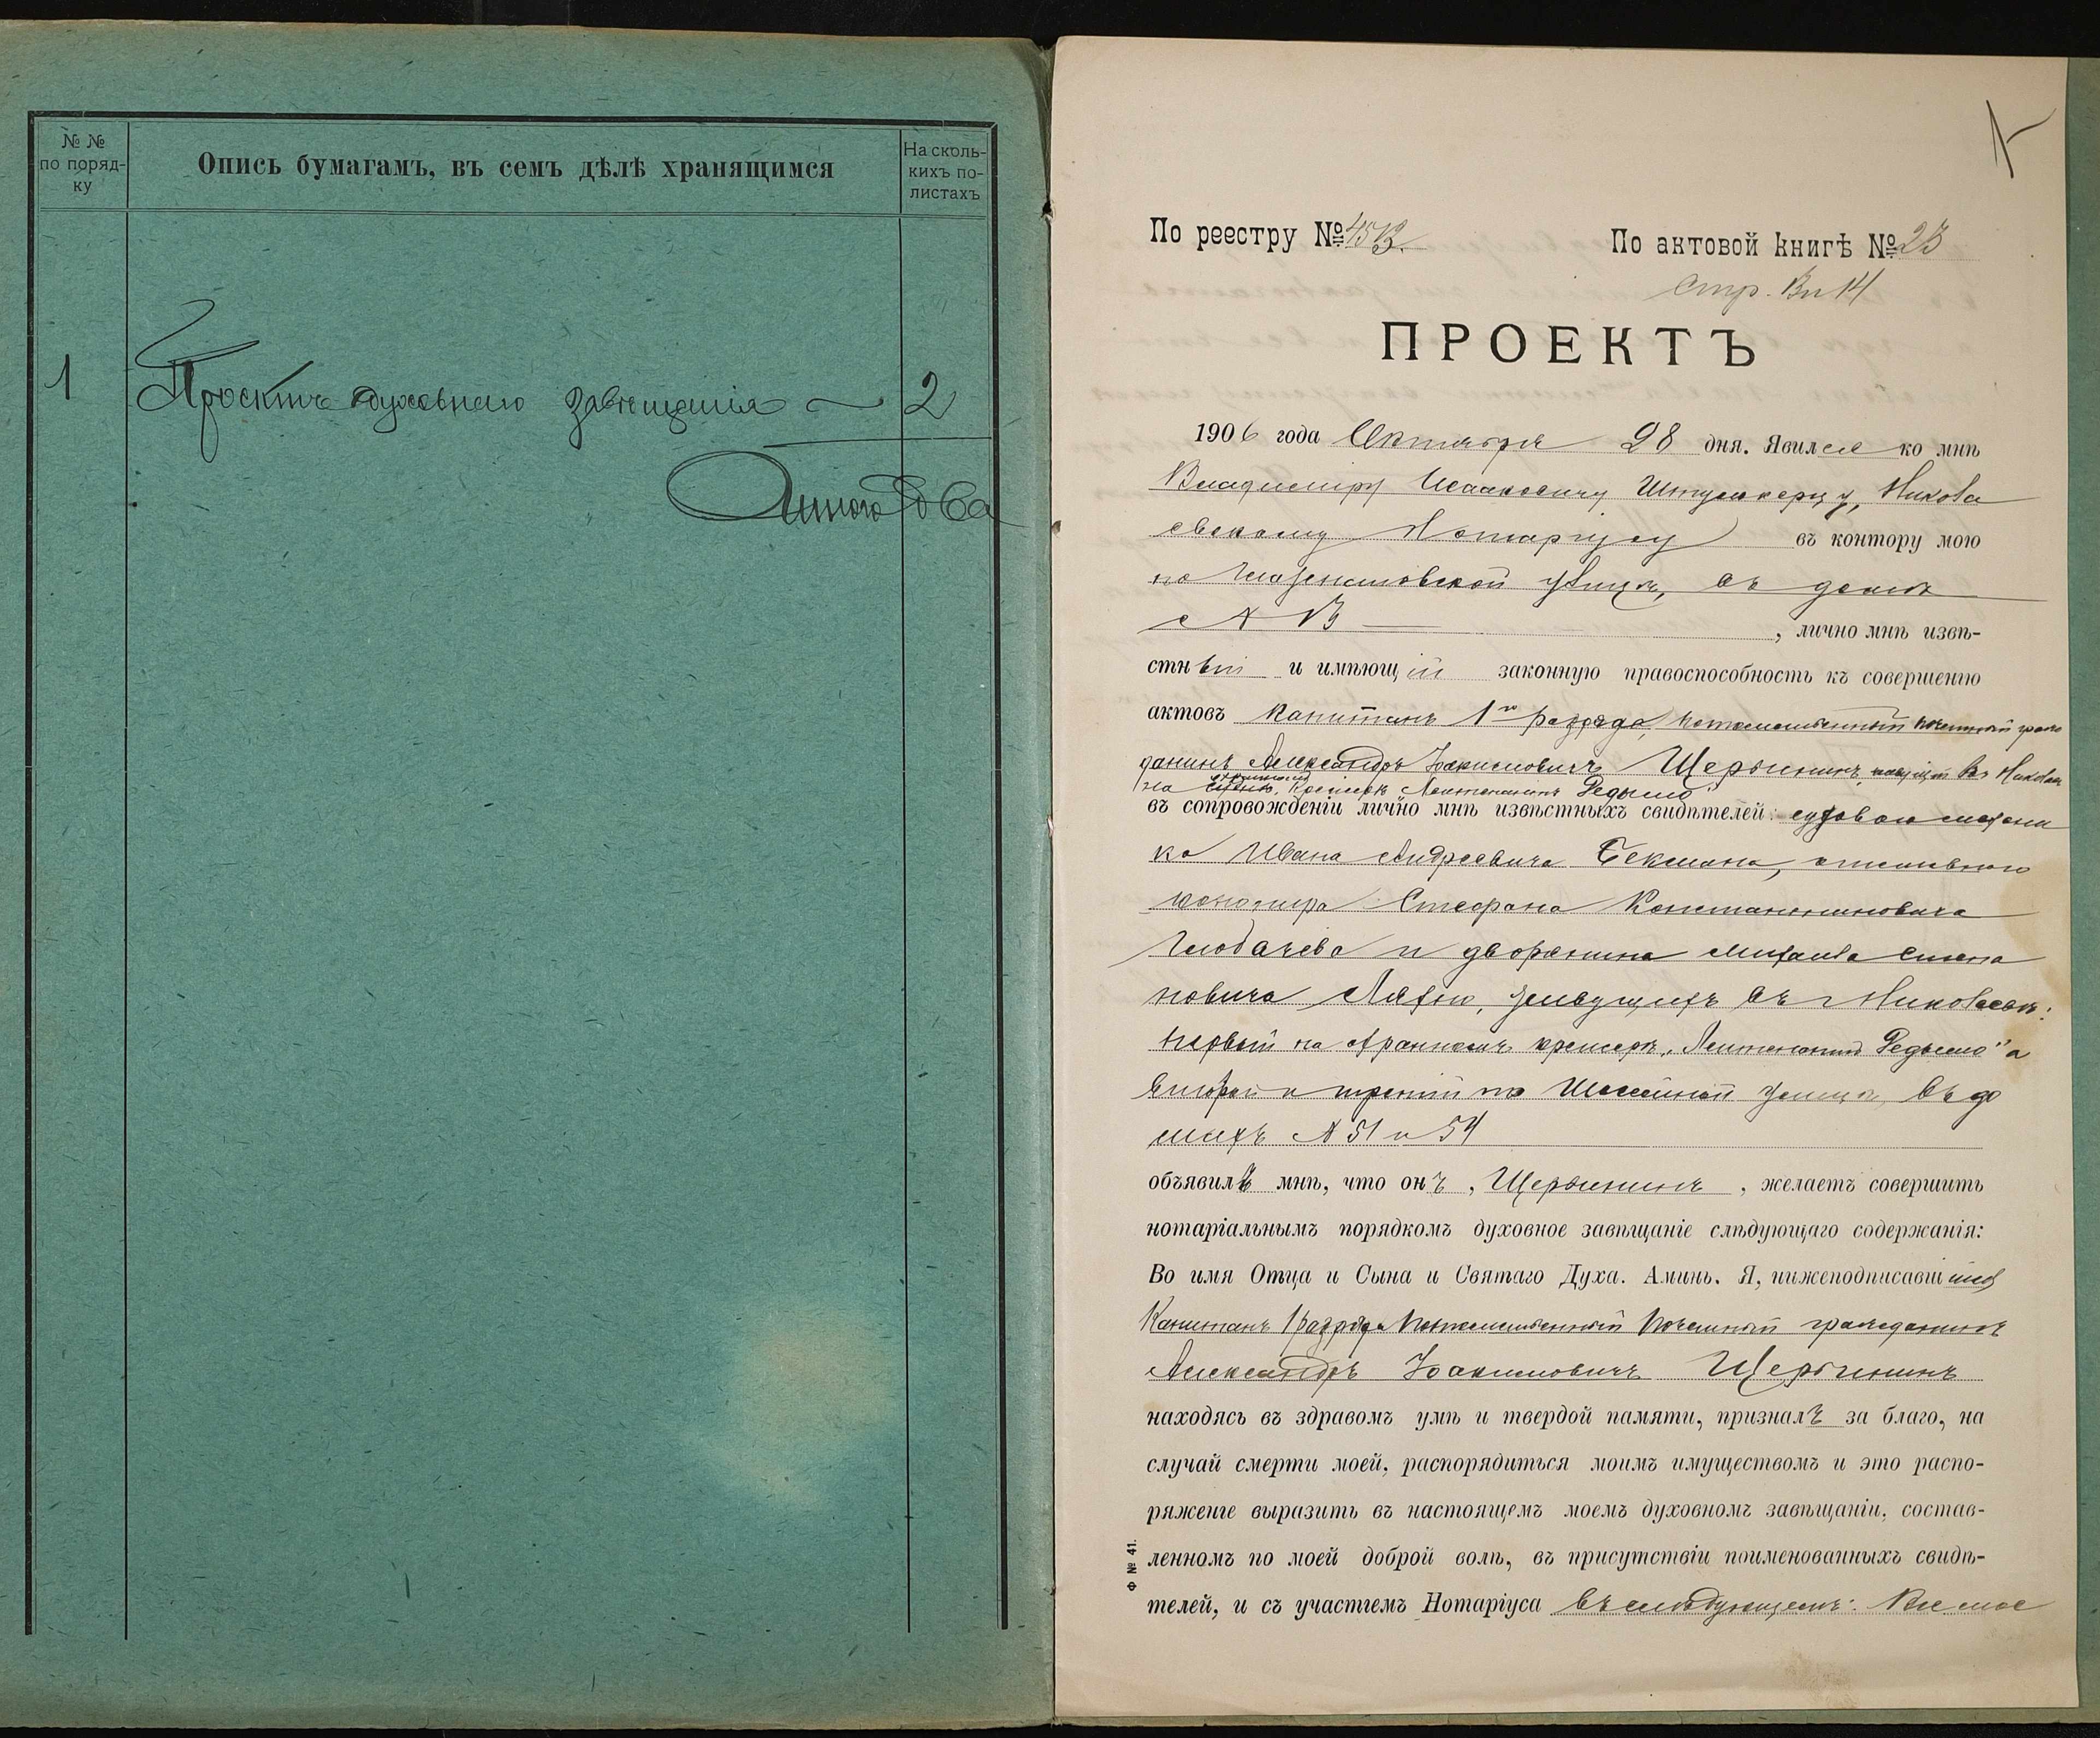 № №
по поряд-
ку
Опись бумагамъ, въ семъ дѣлѣ хранящимся
На сколь-
кихъ по-
листахъ
1
Проектъ духовнаго завѣщанія — 2
Итого два
По реестру № 4513.
По актовой книгѣ № 23
стр.
ПРОЕКТЪ
1906 года Октября 28 дня. Явился ко мнѣ
Владиміру Исааковичу Штулькерцу, Никола
евскому Нотаріусу въ контору мою
по Глазенаповской улицѣ, въ домѣ
с № 13 , лично мнѣ извѣ-
стный и имѣющій законную правоспособность къ совершенію
актовъ Капитанъ 1го разряда, потомственный почетный граж
данинъ Александръ Іоакимовичъ Щербининъ, въ
на крейсерѣ Лейтенантъ
въ сопровожденіи лично мнѣ извѣстныхъ свидѣтелей: судового механи
ка Ивана Андреевича Бекмана, отставного
канонира Стефана Константиновича
Глобачева и дворянина Михаила Степа
новича живущихъ въ г Николаевѣ:
первый на охранномъ крейсерѣ „Лейтенантъ “ а
второй и третій по Шоссейной улицѣ, въ до
махъ № 51 и 54
объявилъ мнѣ, что онъ , Щербининъ , желаетъ совершить
нотаріальнымъ порядкомъ духовное завѣщаніе слѣдующаго содержанія:
Во имя Отца и Сына и Святаго Духа. Аминь. Я, нижеподписавшійся
Капитанъ 1 разряда Потомственный Почетный гражданинъ
Александръ Іоакимовичъ Щербининъ
находясь въ здравомъ умѣ и твердой памяти, призналъ за благо, на
случай смерти моей, распорядиться моимъ имуществомъ и это распо-
ряженіе выразить въ настоящемъ моемъ духовномъ завѣщаніи, состав-
ленномъ по моей доброй волѣ, въ присутствіи поименованныхъ свидѣ-
телей, и съ участіемъ Нотаріуса въ слѣдующемъ: Все мое
Ф № 41.